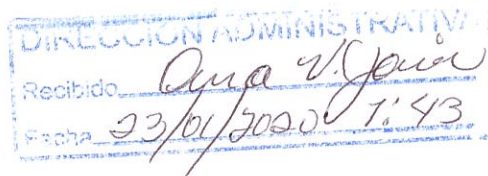 DIRECCIÓN ADMINISTRATIVA
Recibido
Fecha 23/01/2020 1:43